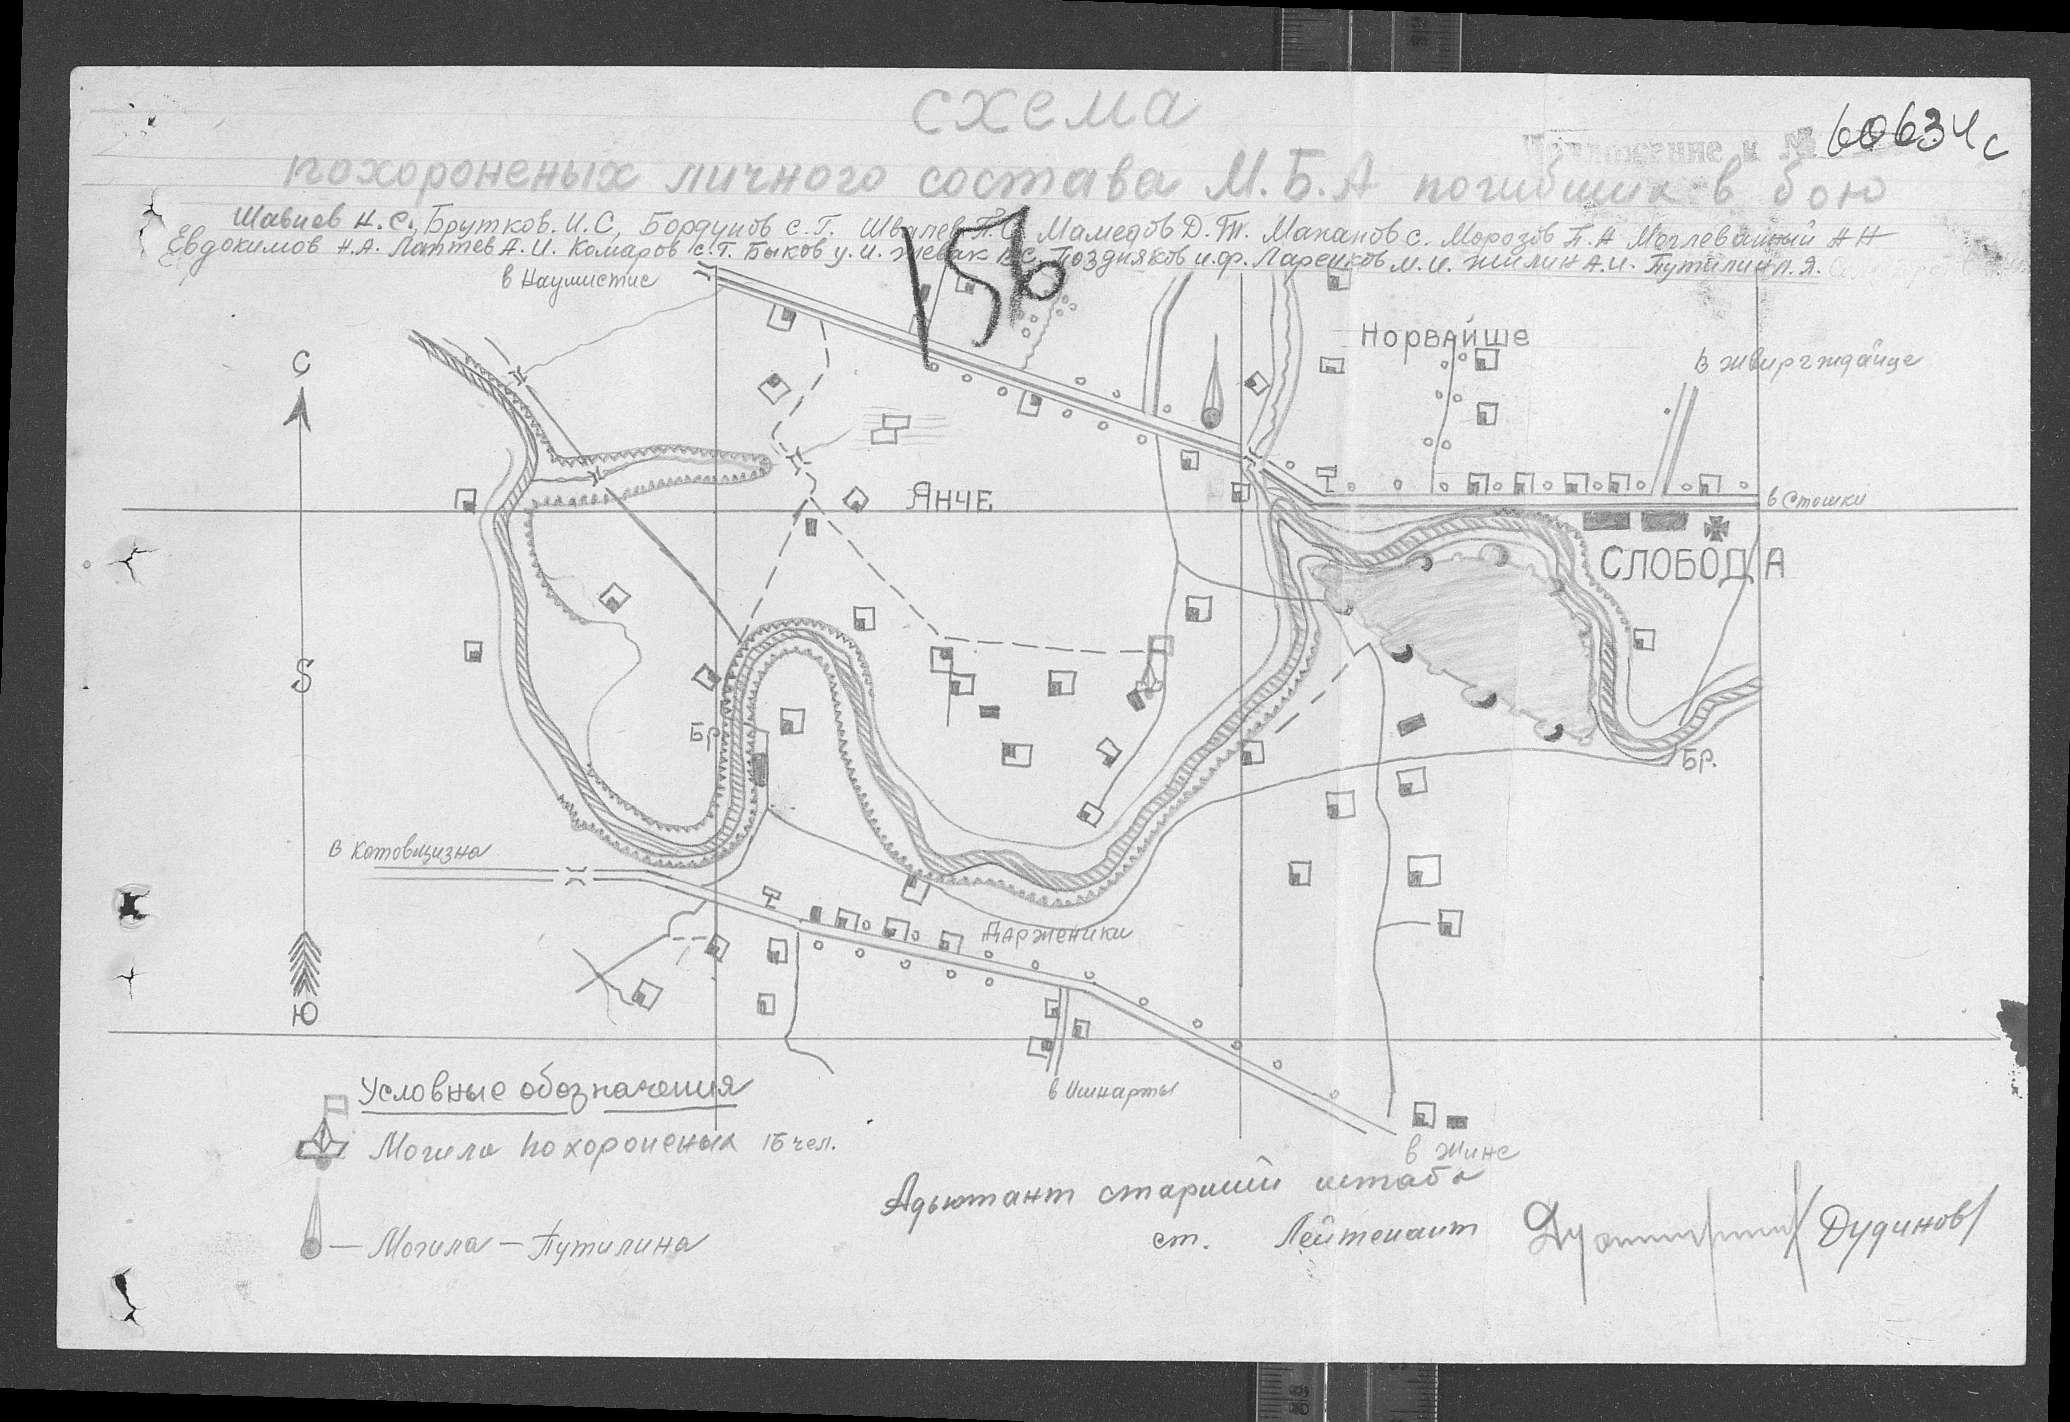 схема
60634с
похороненых личного состава М.Б.А погибших в бою
Шавиев Н.С. Брутков. И.С, Бордунов С.Г. Швалев П.С. Мамедов Д.Т. Маканов С. Морозов П.А Моглеванный А Н
Евдокимов Н.А. Лаптев А.И. Комаров С.Г. Быков У.И. Поздняков И.Ф. Ларенков М.И. Жилин А.И. Путилин А.Я.
156
в Наумистис
Норвайше
в Жвиргждайце
С
Янче
в Стошки
Слобода
S
Бр
Бр.
в Котовщизна
Дарженики
Ю
в Ишнарты
Условные обозначения
Могила похороненых 16 чел.
в Жине
Адьютант старший штаба
ст. Лейтенант
/Дудинов/
— Могила – Путилина